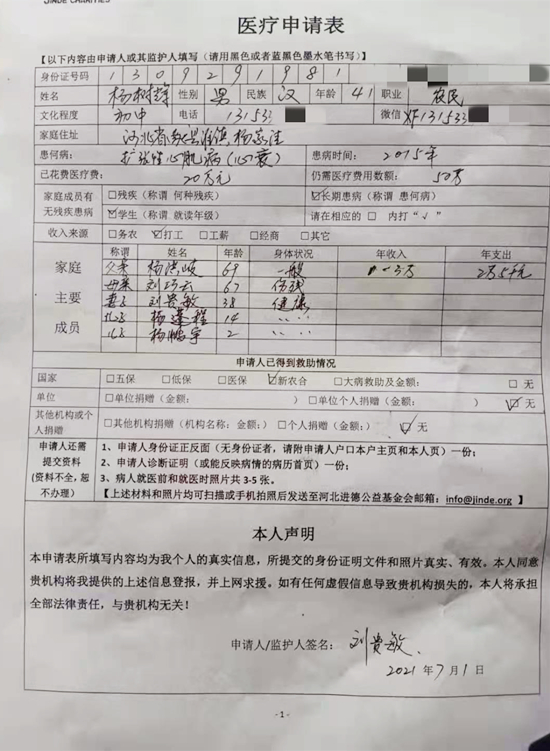 JINDE CHARITIES
医疗申请表
【以下内容由申请人或其监护人填写（请用黑色或者蓝黑色墨水笔书写）】
身份证号码 1 3 0 9 2 9 1 9 8 1
姓名 杨树 性别 男 民族 汉 年龄 41 职业 农民
文化程度 初中 电话 13153 微信 131533
家庭住址 河北省献县淮镇杨 洼
患何病： 扩张性心肌病（心衰） 患病时间： 2015年
已花费医疗费： 20万元 仍需医疗费用数额： 50万
家庭成员有无残疾患病 □残疾（称谓 何种残疾） ☑长期患病（称谓 患何病）
☑学生（称谓 就读年级） 请在相应的 □ 内打“√”
收入来源 □务农 ☑打工 □工薪 □经商 □其它
家庭主要成员 称谓 姓名 年龄 身体状况 年收入 年支出
父亲 杨 岐 69 一般 3万 2万5千元
母亲 刘巧云 67 伤残
妻子 刘贵敏 38 健康
儿子 杨 程 14 〃 〃
儿子 杨鹏宇 2 〃 〃
申请人已得到救助情况
国家 □五保 □低保 □医保 ☑新农合 □大病救助及金额： □ 无
单位 □单位捐赠（金额： ） □单位个人捐赠（金额： ） ☑ 无
其他机构或个人捐赠 □其他机构捐赠（机构名称： 金额：） □个人捐赠（金额： ） ☑ 无
申请人还需提交资料(资料不全，恕不办理) 1、申请人身份证正反面（无身份证者，请附申请人户口本户主页和本人页）一份；
2、申请人诊断证明（或能反映病情的病历首页）一份；
3、病人就医前和就医时照片共 3-5 张。
【上述材料和照片均可扫描或手机拍照后发送至河北进德公益基金会邮箱：info@jinde.org 】
本人声明
本申请表所填写内容均为我个人的真实信息，所提交的身份证明文件和照片真实、有效。本人同意
贵机构将我提供的上述信息登报，并上网求援。如有任何虚假信息导致贵机构损失的，本人将承担
全部法律责任，与贵机构无关！
申请人/监护人签名： 刘贵敏
2021 年 7 月 1 日
- 1 -